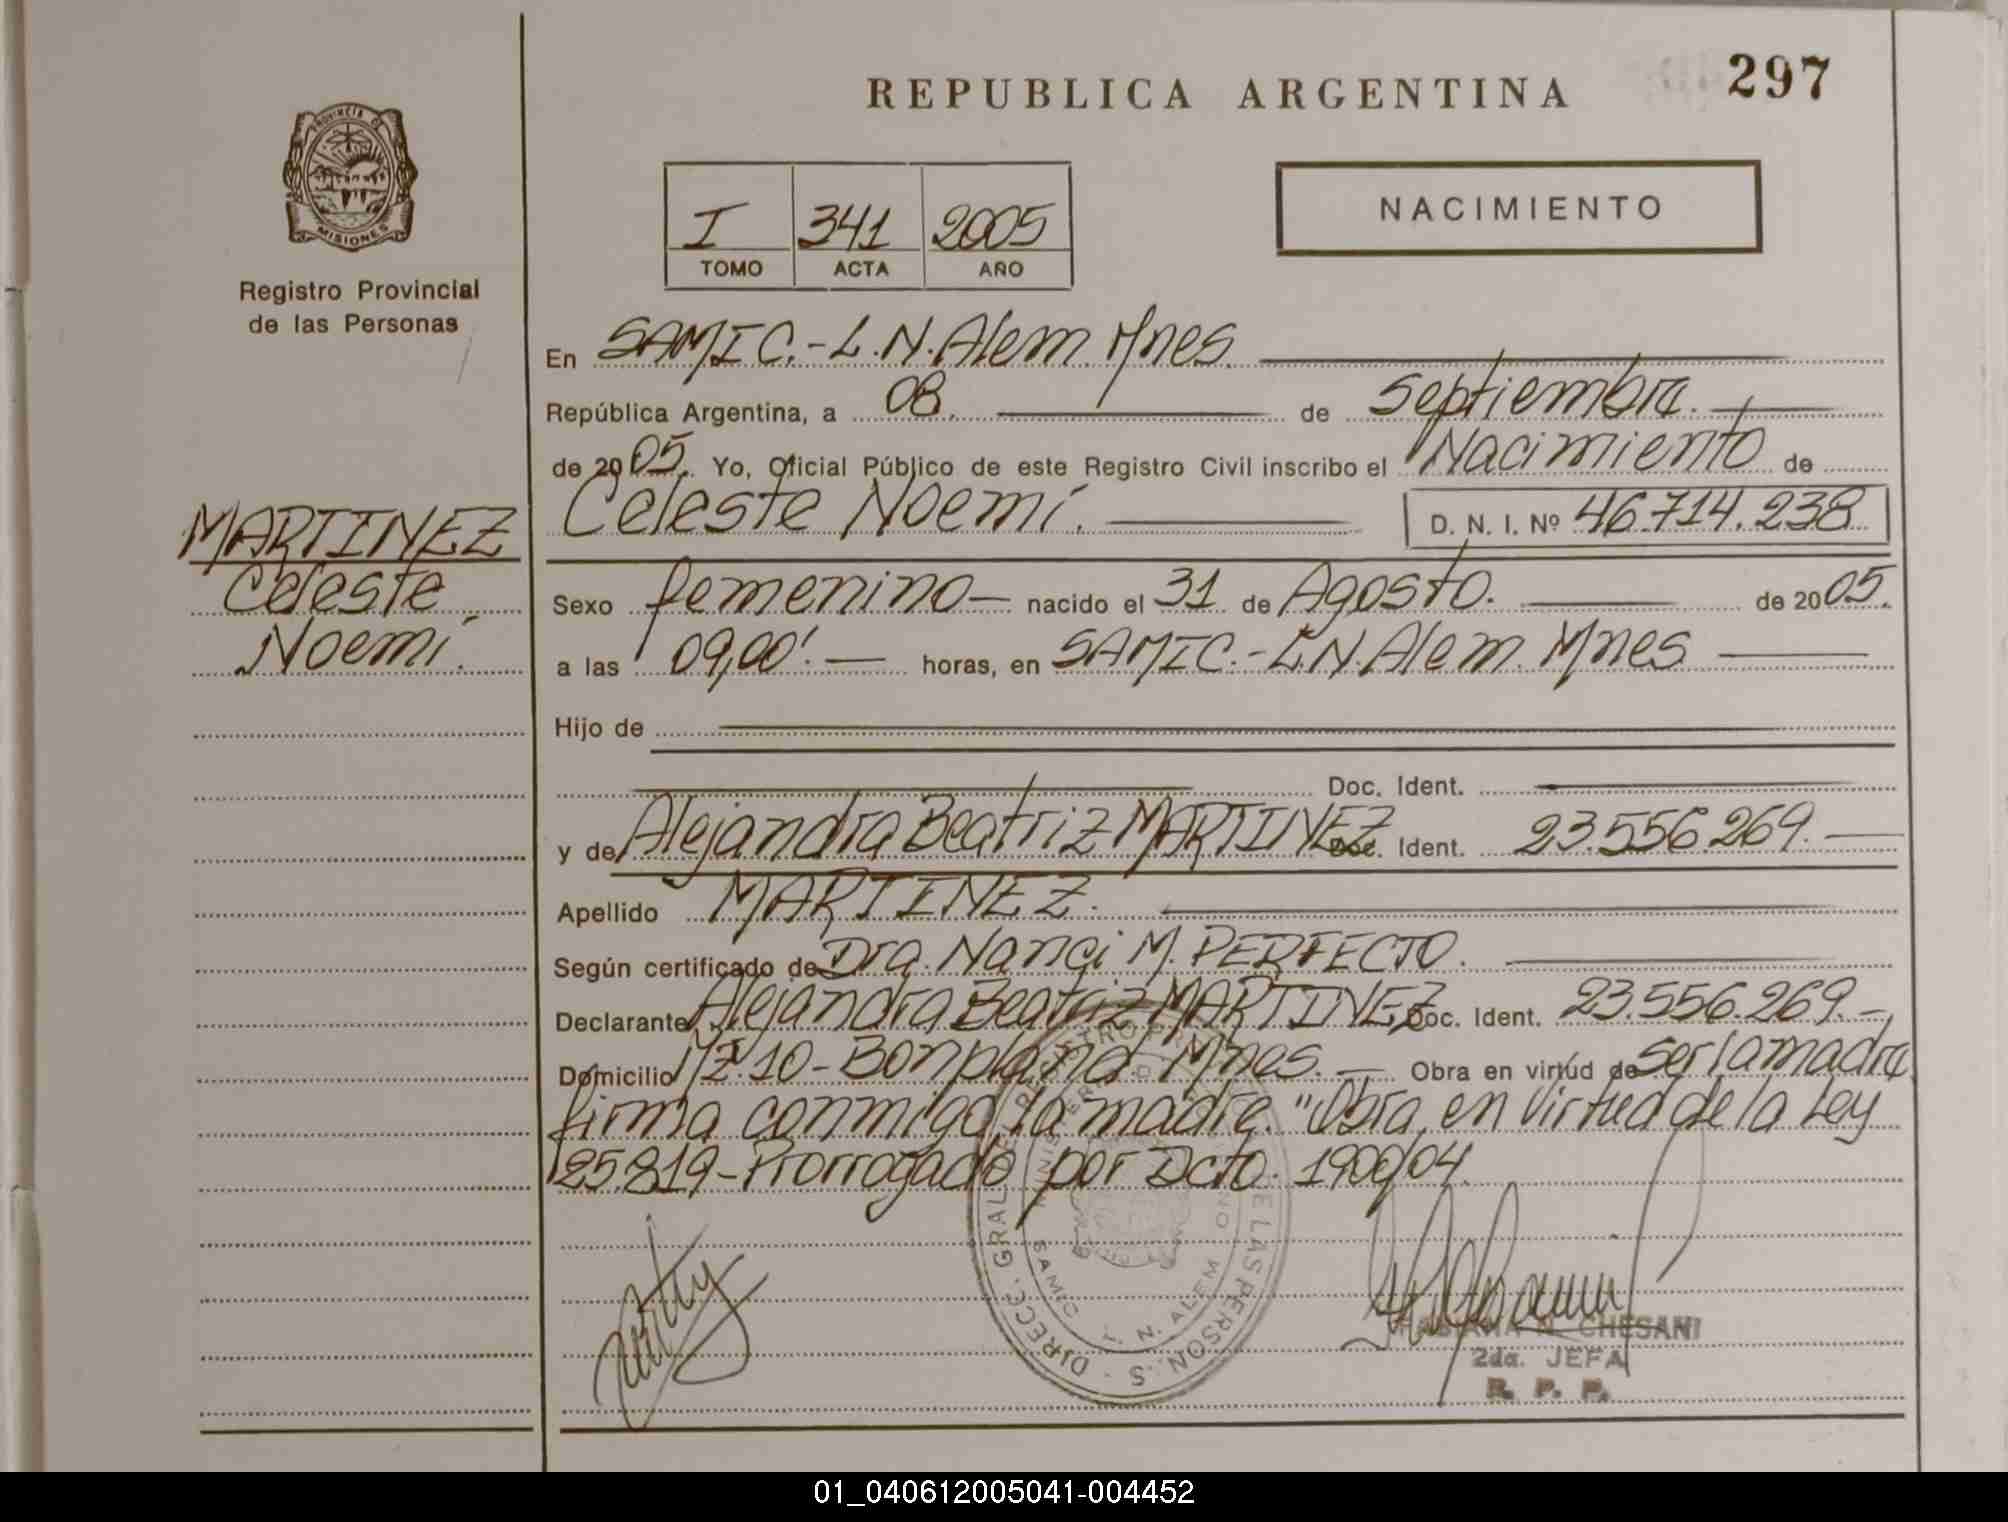 REPUBLICA ARGENTINA
297
PROVINCIA DE
MISIONES
Registro Provincial
de las Personas
I 341 2005
TOMO ACTA AÑO
NACIMIENTO
En SAMIC.-L.N.Alem Mnes.
República Argentina, a 08. de septiembre.
de 2005. Yo, Oficial Público de este Registro Civil inscribo el Nacimiento de
Celeste Noemí. D. N. I. Nº 46.714.238
MARTINEZ
Celeste
Noemí.
Sexo femenino nacido el 31 de Agosto. de 2005.
a las 09,00'. horas, en SAMIC.-L.N.Alem. Mnes
Hijo de
Doc. Ident.
y de Alejandra Beatriz MARTINEZ Doc. Ident. 23.556.269.
Apellido MARTINEZ.
Según certificado de Dra. Nanci M. PERFECTO.
Declarante Alejandra Beatriz MARTINEZ Doc. Ident. 23.556.269.-
Domicilio Mz.10-Bonpland Mnes. Obra en virtúd de ser la madre
firma conmigo, la madre. "Obra en virtud de la Ley
25.819-Prorrogado por Dcto. 1900/04.
DIRECC. GRAL
DE LAS PERSONAS
SAMIC
L. N. ALEM
FABIANA N. CHESANI
2da. JEFA
R. P. P.
01_040612005041-004452